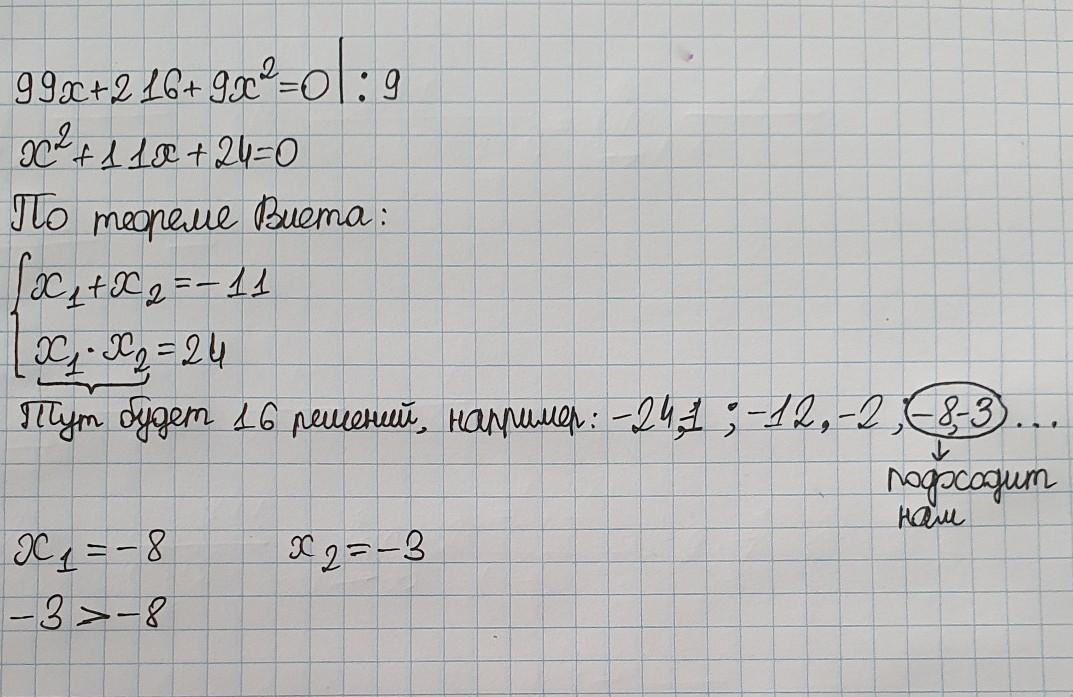 99x+216+9x²=0|:9
x²+11x+24=0
По теореме Виета:
{x₁+x₂=-11
x₁·x₂=24
Тут будет 16 решений, например: -24,1 ; -12,-2 ; -8,-3 ...
подходит
нам
x₁=-8 x₂=-3
-3>-8